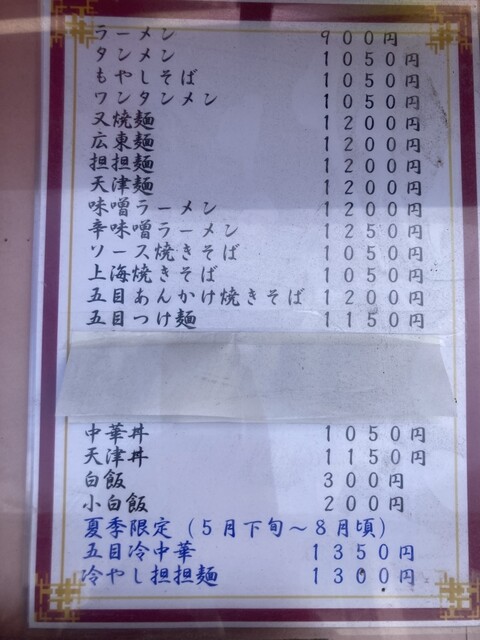 ラーメン 900円
タンメン 1050円
もやしそば 1050円
ワンタンメン 1050円
叉焼麺 1200円
広東麺 1200円
担担麺 1200円
天津麺 1200円
味噌ラーメン 1200円
辛味噌ラーメン 1250円
ソース焼きそば 1050円
上海焼きそば 1050円
五目あんかけ焼きそば 1200円
五目つけ麺 1150円
中華丼 1050円
天津丼 1150円
白飯 300円
小白飯 200円
夏季限定(5月下旬〜8月頃)
五目冷中華 1350円
冷やし担担麺 1300円